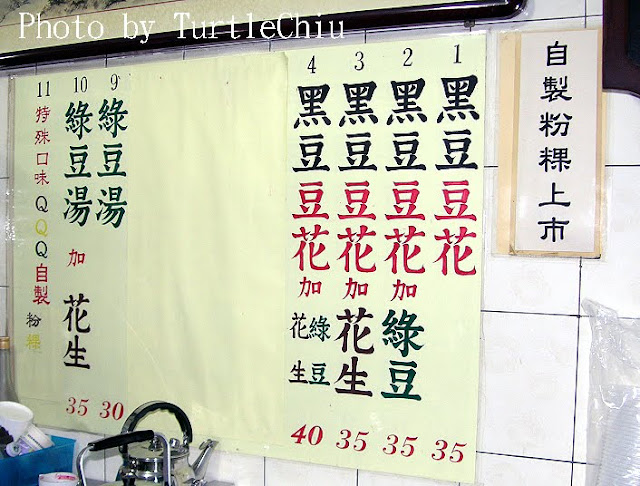 Photo by TurtleChiu
自製粉粿上市
1 黑豆豆花 35
2 黑豆豆花加綠豆 35
3 黑豆豆花加花生 35
4 黑豆豆花加花生綠豆 40
9 綠豆湯 30
10 綠豆湯加花生 35
11 特殊口味QQQ自製粉粿